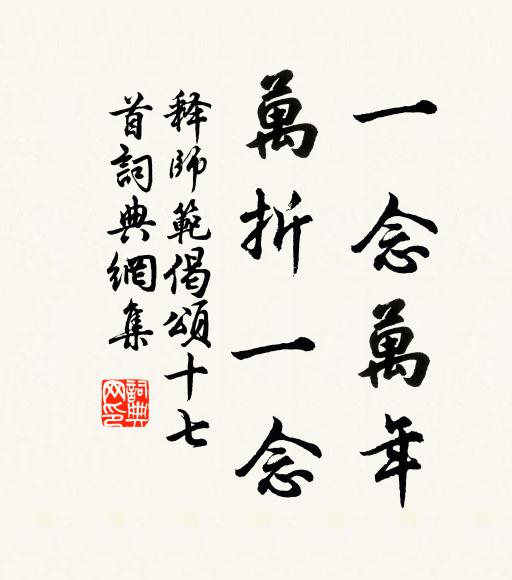 一念萬年
萬折一念
释師範偈頌十七
首詞典網集
詞典网印